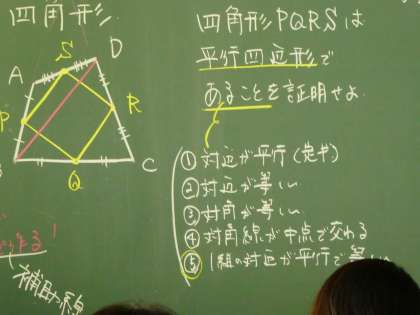 四角形
四角形PQRSは
平行四辺形で
あることを証明せよ.
S
D
A
P
R
C
Q
① 対辺が平行 (定義)
② 対辺が等しい
③ 対角が等しい
④ 対角線が中点で交わる
⑤ 1組の対辺が平行で等しい
る!
補助線